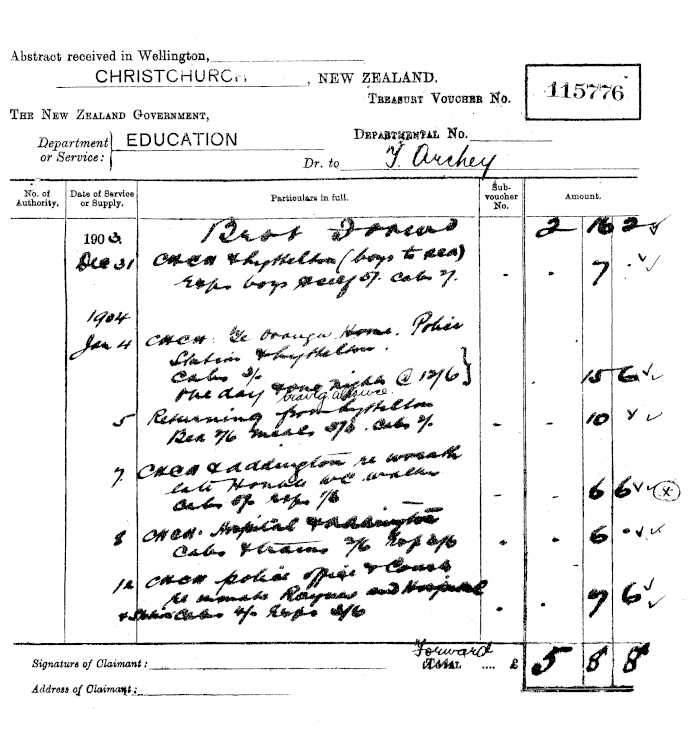 Abstract received in Wellington,
CHRISTCHURCH, NEW ZEALAND.
TREASURY VOUCHER No. 115776
THE NEW ZEALAND GOVERNMENT,
Department or Service: } EDUCATION
DEPARTMENTAL No.
Dr. to Archey
No. of Authority. Date of Service or Supply. Particulars in full. Sub-voucher No. Amount.
1903. Brot Forward 2 16 2
Dec 31 CHCH & Lyttelton (boys to sea)
Exps boys & self 5/. Cabs 2/. - - 7 -
1904
Jan 4 CHCH. Te Oranga Home. Police
Station & Lyttelton.
Cabs 3/-
One day & one night @ 12/6 } 15 6
travlg allowance
5 Returning from Lyttelton - - 10
Bed 2/6 meals Cabs 2/.
7 CHCH & Addington re
late
Cabs 5/- exps 1/6 - - 6 6
8 CHCH. Hospital & Addington
Cabs & trams 3/6 Exp 2/6 - - 6 -
12 CHCH police office & Court
re inmate and Hospital
& Cabs 4/- Exps 3/6 - - 7 6
Forward
Signature of Claimant: TOTAL .... £ 5 8 8
Address of Claimant: